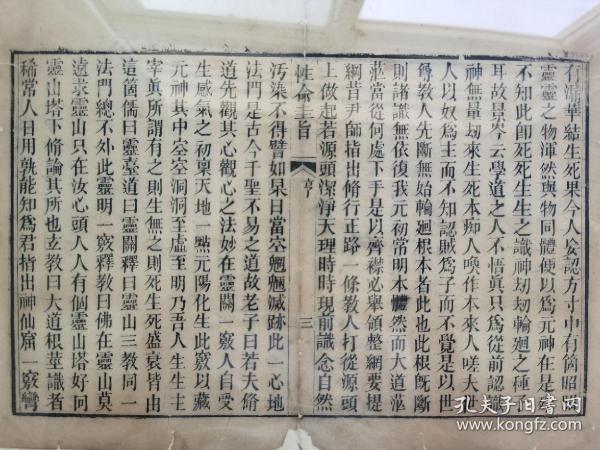 有漏華結生死果今人妄認方寸中有箇昭昭
靈靈之物渾然與物同體便以爲元神在是
不知此卽死死生生之識神刧刧輪廻之種子
耳故景岑云學道之人不悟真只爲從前認識
神無量刧來生死本痴人喚作本來人嗟夫世
人以奴爲主而不知認賊爲子而不覺是以世
尊教人先斷無始輪廻根本者此也此根旣斷
則諸識無依復我元初常明本體然而大道茫
茫當從何處下手是以齊襟必舉領整網要提
綱昔尹師指出脩行正路一條教人打從源頭
上做起若源頭潔淨天理時時現前識念自然
性命圭旨
亨
三
汚染不得譬如杲日當空魍魎滅跡此一心地
法門是古今千聖不易之道故老子曰若夫脩
道先觀其心觀心之法妙在靈關一竅人自受
生感氣之初稟天地一㸃元陽化生此竅以藏
元神其中空空洞洞至虛至明乃吾人生生主
宰眞所謂有之則生無之則死生死盛衰皆由
這箇儒曰靈臺道曰靈關釋曰靈山三教同一
法門總不外此靈明一竅釋教曰佛在靈山莫
遠求靈山只在汝心頭人人有個靈山塔好向
靈山塔下脩論其所也玄教曰大道根莖識者
稀常人日用孰能知爲君指出神仙窟一竅彎
孔夫子旧書网
www.kongfz.com